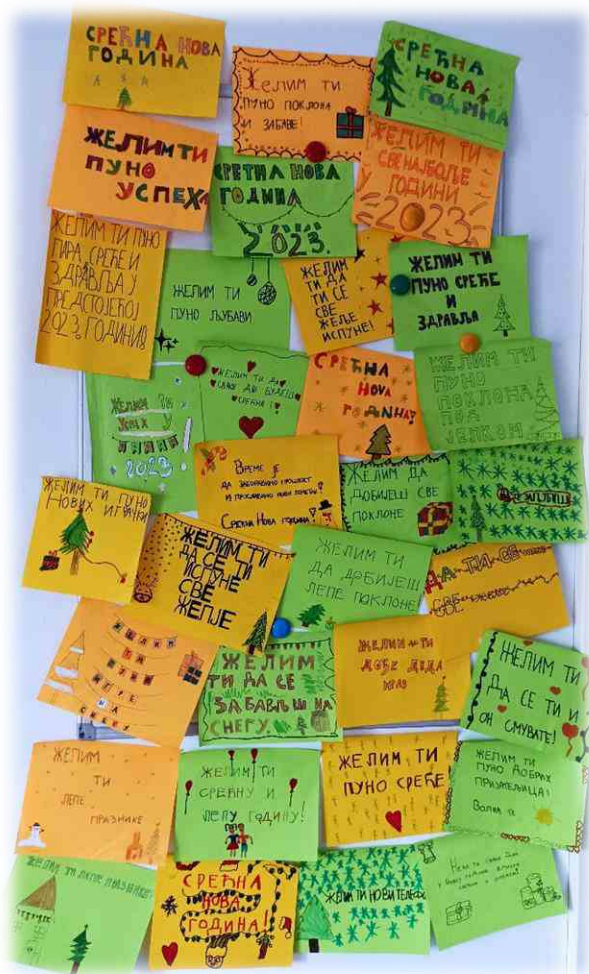 СРЕЋНА НОВА
ГОДИНА
ЖЕЛИМ ТИ
ПУНО ПОКЛОНА
И ЗАБАВЕ!
СРЕЋНА
НОВА
ГОДИНА
ЖЕЛИМ ТИ
ПУНО
УСПЕХА
СРЕТНА НОВА
ГОДИНА
2023.
ЖЕЛИМ ТИ
СВЕ НАЈБОЉЕ
У ГОДИНИ
2023
ЖЕЛИМ ТИ ПУНО
ПАРА, СРЕЋЕ И
ЗДРАВЉА У
ПРЕДСТОЈЕЋОЈ
2023. ГОДИНИ
ЖЕЛИМ ТИ
ПУНО ЉУБАВИ
ЖЕЛИМ
ТИ ДА
ТИ СЕ
СВЕ
ЖЕЉЕ
ИСПУНЕ!
ЖЕЛИМ ТИ
ПУНО СРЕЋЕ
И
ЗДРАВЉА
ЖЕЛИМ ТИ
УСПЕХ У
2023.
ЖЕЛИМ ТИ ДА
БУДЕШ
СРЕЋНА!
СРЕЋНА
НОВА
ГОДИНА!
ЖЕЛИМ ТИ
ПУНО
ПОКЛОНА
ПОД
ЈЕЛКОМ
ВРЕМЕ ЈЕ
ДА ЗАБОРАВИМО ПРОШЛОСТ
И ПРОСЛАВИМО НОВИ ПОЧЕТАК!
СРЕЋНА НОВА ГОДИНА!
ЖЕЛИМ ДА
ДОБИЈЕШ СВЕ
ПОКЛОНЕ
ЖЕЛИМ ТИ ПУНО
НОВИХ ИГРАЧКИ
ЖЕЛИМ ТИ
ДА СЕ ТИ
ИСПУНЕ
СВЕ
ЖЕЉЕ
ЖЕЛИМ ТИ
ДА ДОБИЈЕШ
ЛЕПЕ ПОКЛОНЕ
ДА ТИ СЕ
СВЕ
ЖЕЛИМ
ТИ ПУНО
ИГРЕ
НА
СНЕГУ
ЖЕЛИМ
ТИ ДА СЕ
ЗАБАВЉАШ НА
СНЕГУ
ЖЕЛИМ ТИ
ДОЂЕ ДЕДА
МРАЗ
ЖЕЛИМ ТИ
ДА СЕ ТИ И
ОН СМУВАТЕ!
ЖЕЛИМ
ТИ
ЛЕПЕ
ПРАЗНИКЕ
ЖЕЛИМ ТИ
СРЕЋНУ И
ЛЕПУ ГОДИНУ!
ЖЕЛИМ ТИ
ПУНО СРЕЋЕ!
ЖЕЛИМ ТИ
ПУНО ДОБРИХ
ПРИЈАТЕЉИЦА!
ВОЛИМ ТЕ
ЖЕЛИМ ТИ ЛЕПЕ ПРАЗНИКЕ
СРЕЋНА
НОВА
ГОДИНА!
ЖЕЛИМ ТИ НОВИ ТЕЛЕФОН